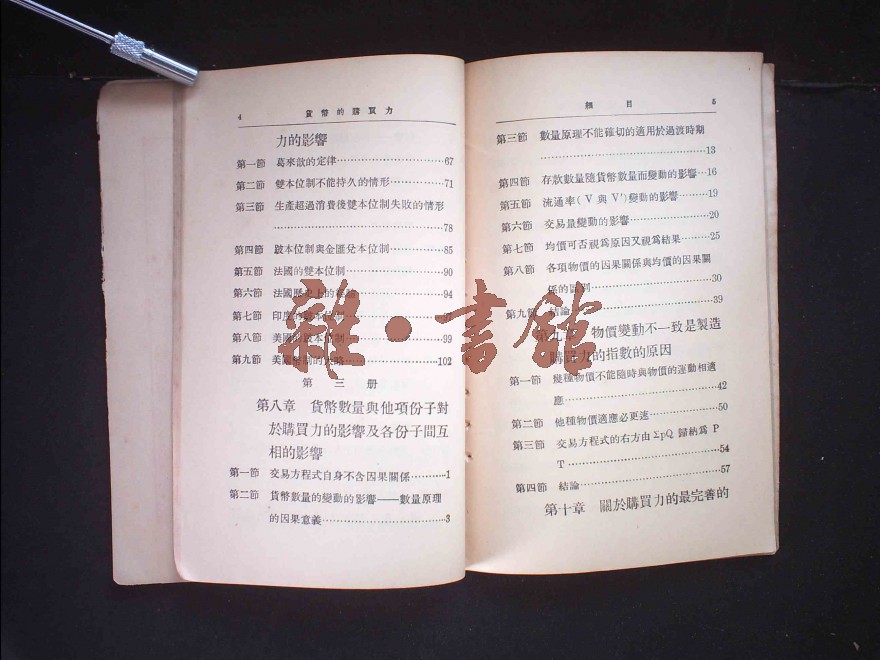 4 貨幣的購買力
力的影響
第一節 葛來歆的定律……67
第二節 雙本位制不能持久的情形……71
第三節 生產超過消費後雙本位制失敗的情形
……78
第四節 跛本位制與金匯兌本位制……85
第五節 法國的雙本位制……90
第六節 法國歷史上的……94
第七節 印度的本位制
第八節 美國的跛本位制……99
第九節 美國幣制的……102
第三册
第八章 貨幣數量與他項份子對
於購買力的影響及各份子間互
相的影響
第一節 交易方程式自身不含因果關係……1
第二節 貨幣數量的變動的影響——數量原理
的因果意義……3
細目 5
第三節 數量原理不能確切的適用於過渡時期
……13
第四節 存款數量隨貨幣數量而變動的影響…16
第五節 流通率(V與V′)變動的影響……19
第六節 交易量變動的影響……20
第七節 均價可否視為原因又視為結果……25
第八節 各項物價的因果關係與均價的因果關
係的區別……30
第九節 結論……39
第九章 物價變動不一致是製造
購買力的指數的原因
第一節 幾種物價不能隨時與物價的運動相適
應……42
第二節 他種物價適應必更速……50
第三節 交易方程式的右方由ΣpQ歸納為P
T……54
第四節 結論……57
第十章 關於購買力的最完善的
雜·書館